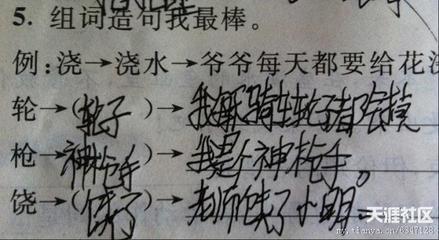 5. 组词造句我最棒。
例:浇→浇水→爷爷每天都要给花浇
轮→(轮子)→我每天骑车轮子都会
枪→神枪手)→我是个神枪手。
饶→(饶了)→老师饶了小明。
天涯社区
my.tianya.cn/6347128